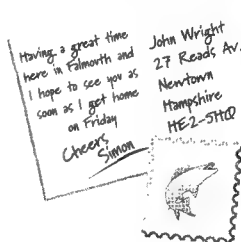 Having a great time
here in Falmouth and
I hope to see you as
soon as I get home
on Friday
Cheers
Simon
John Wright
27 Reads Av.
Newtown
Hampshire
HE2-5HQ